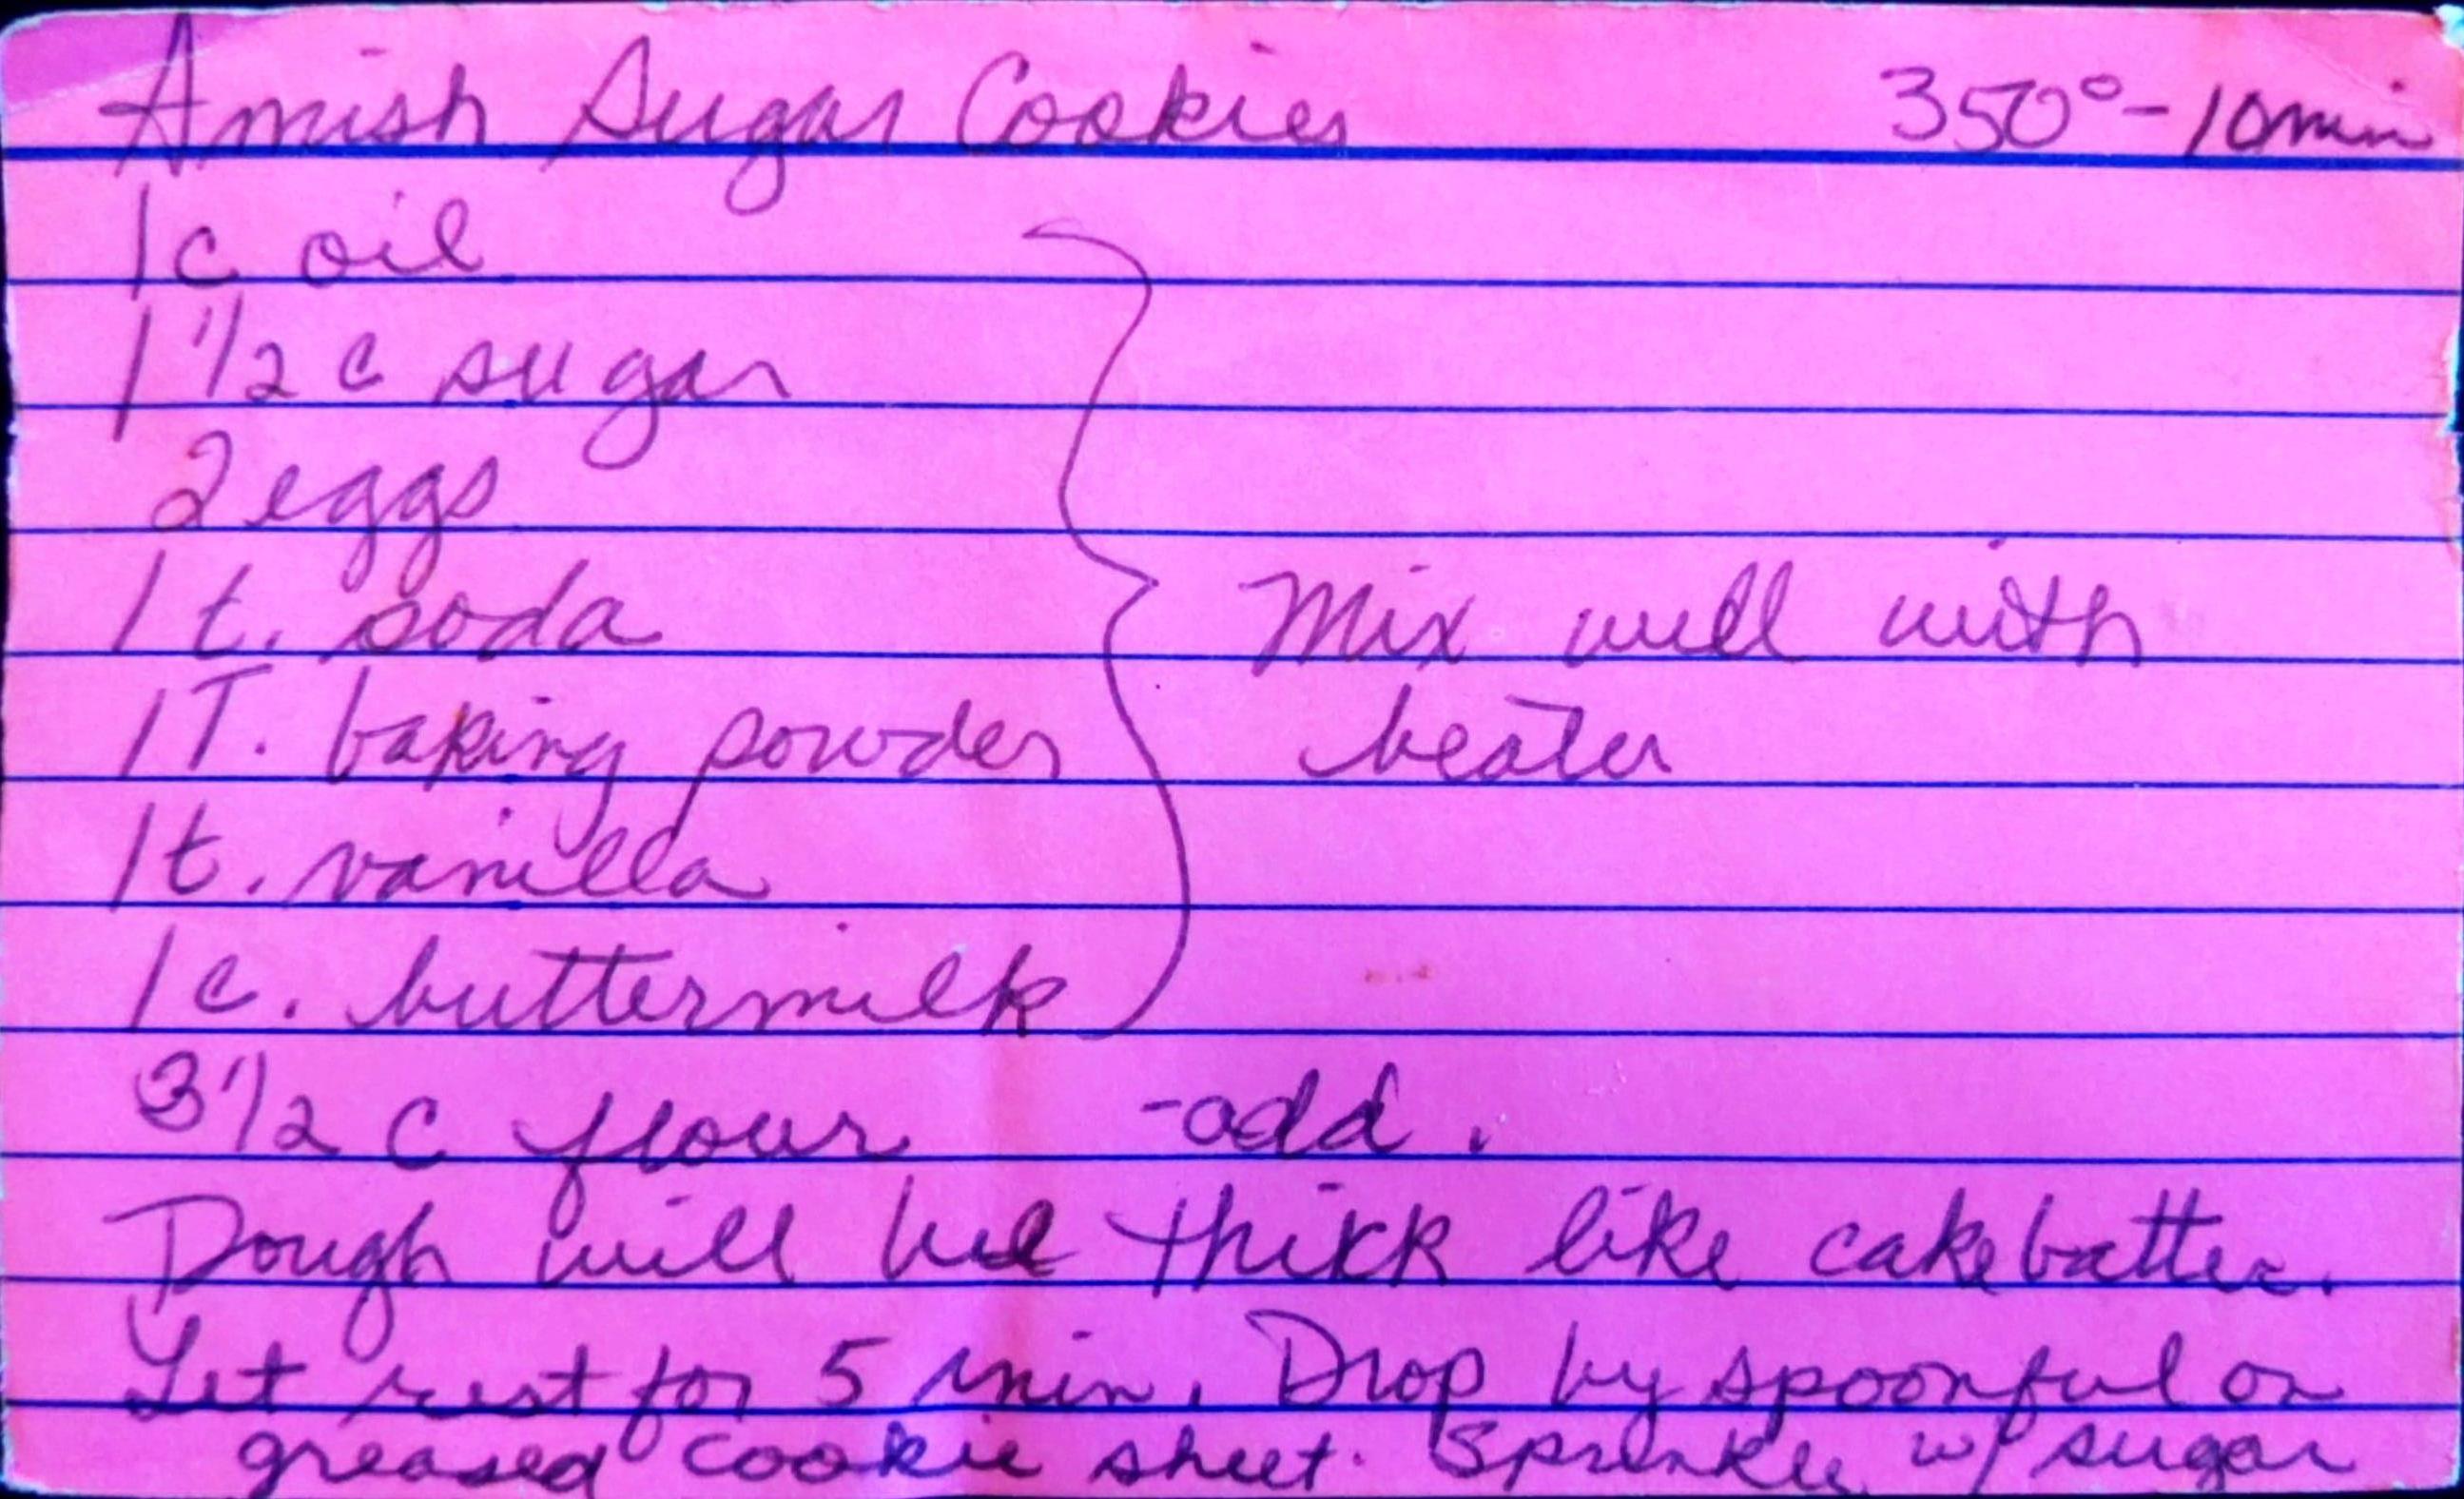 Amish Sugar Cookies 350°-10min
1c oil
1 1/2 c sugar
2 eggs
1 t. soda
Mix well with
1T. baking powder
beater
1t. vanilla
1c. buttermilk
3 1/2 c flour -add.
Dough will be thikk like cakebatter.
Let rest for 5 min. Drop by spoonful on
greased cookie sheet. Sprinkle w/ sugar